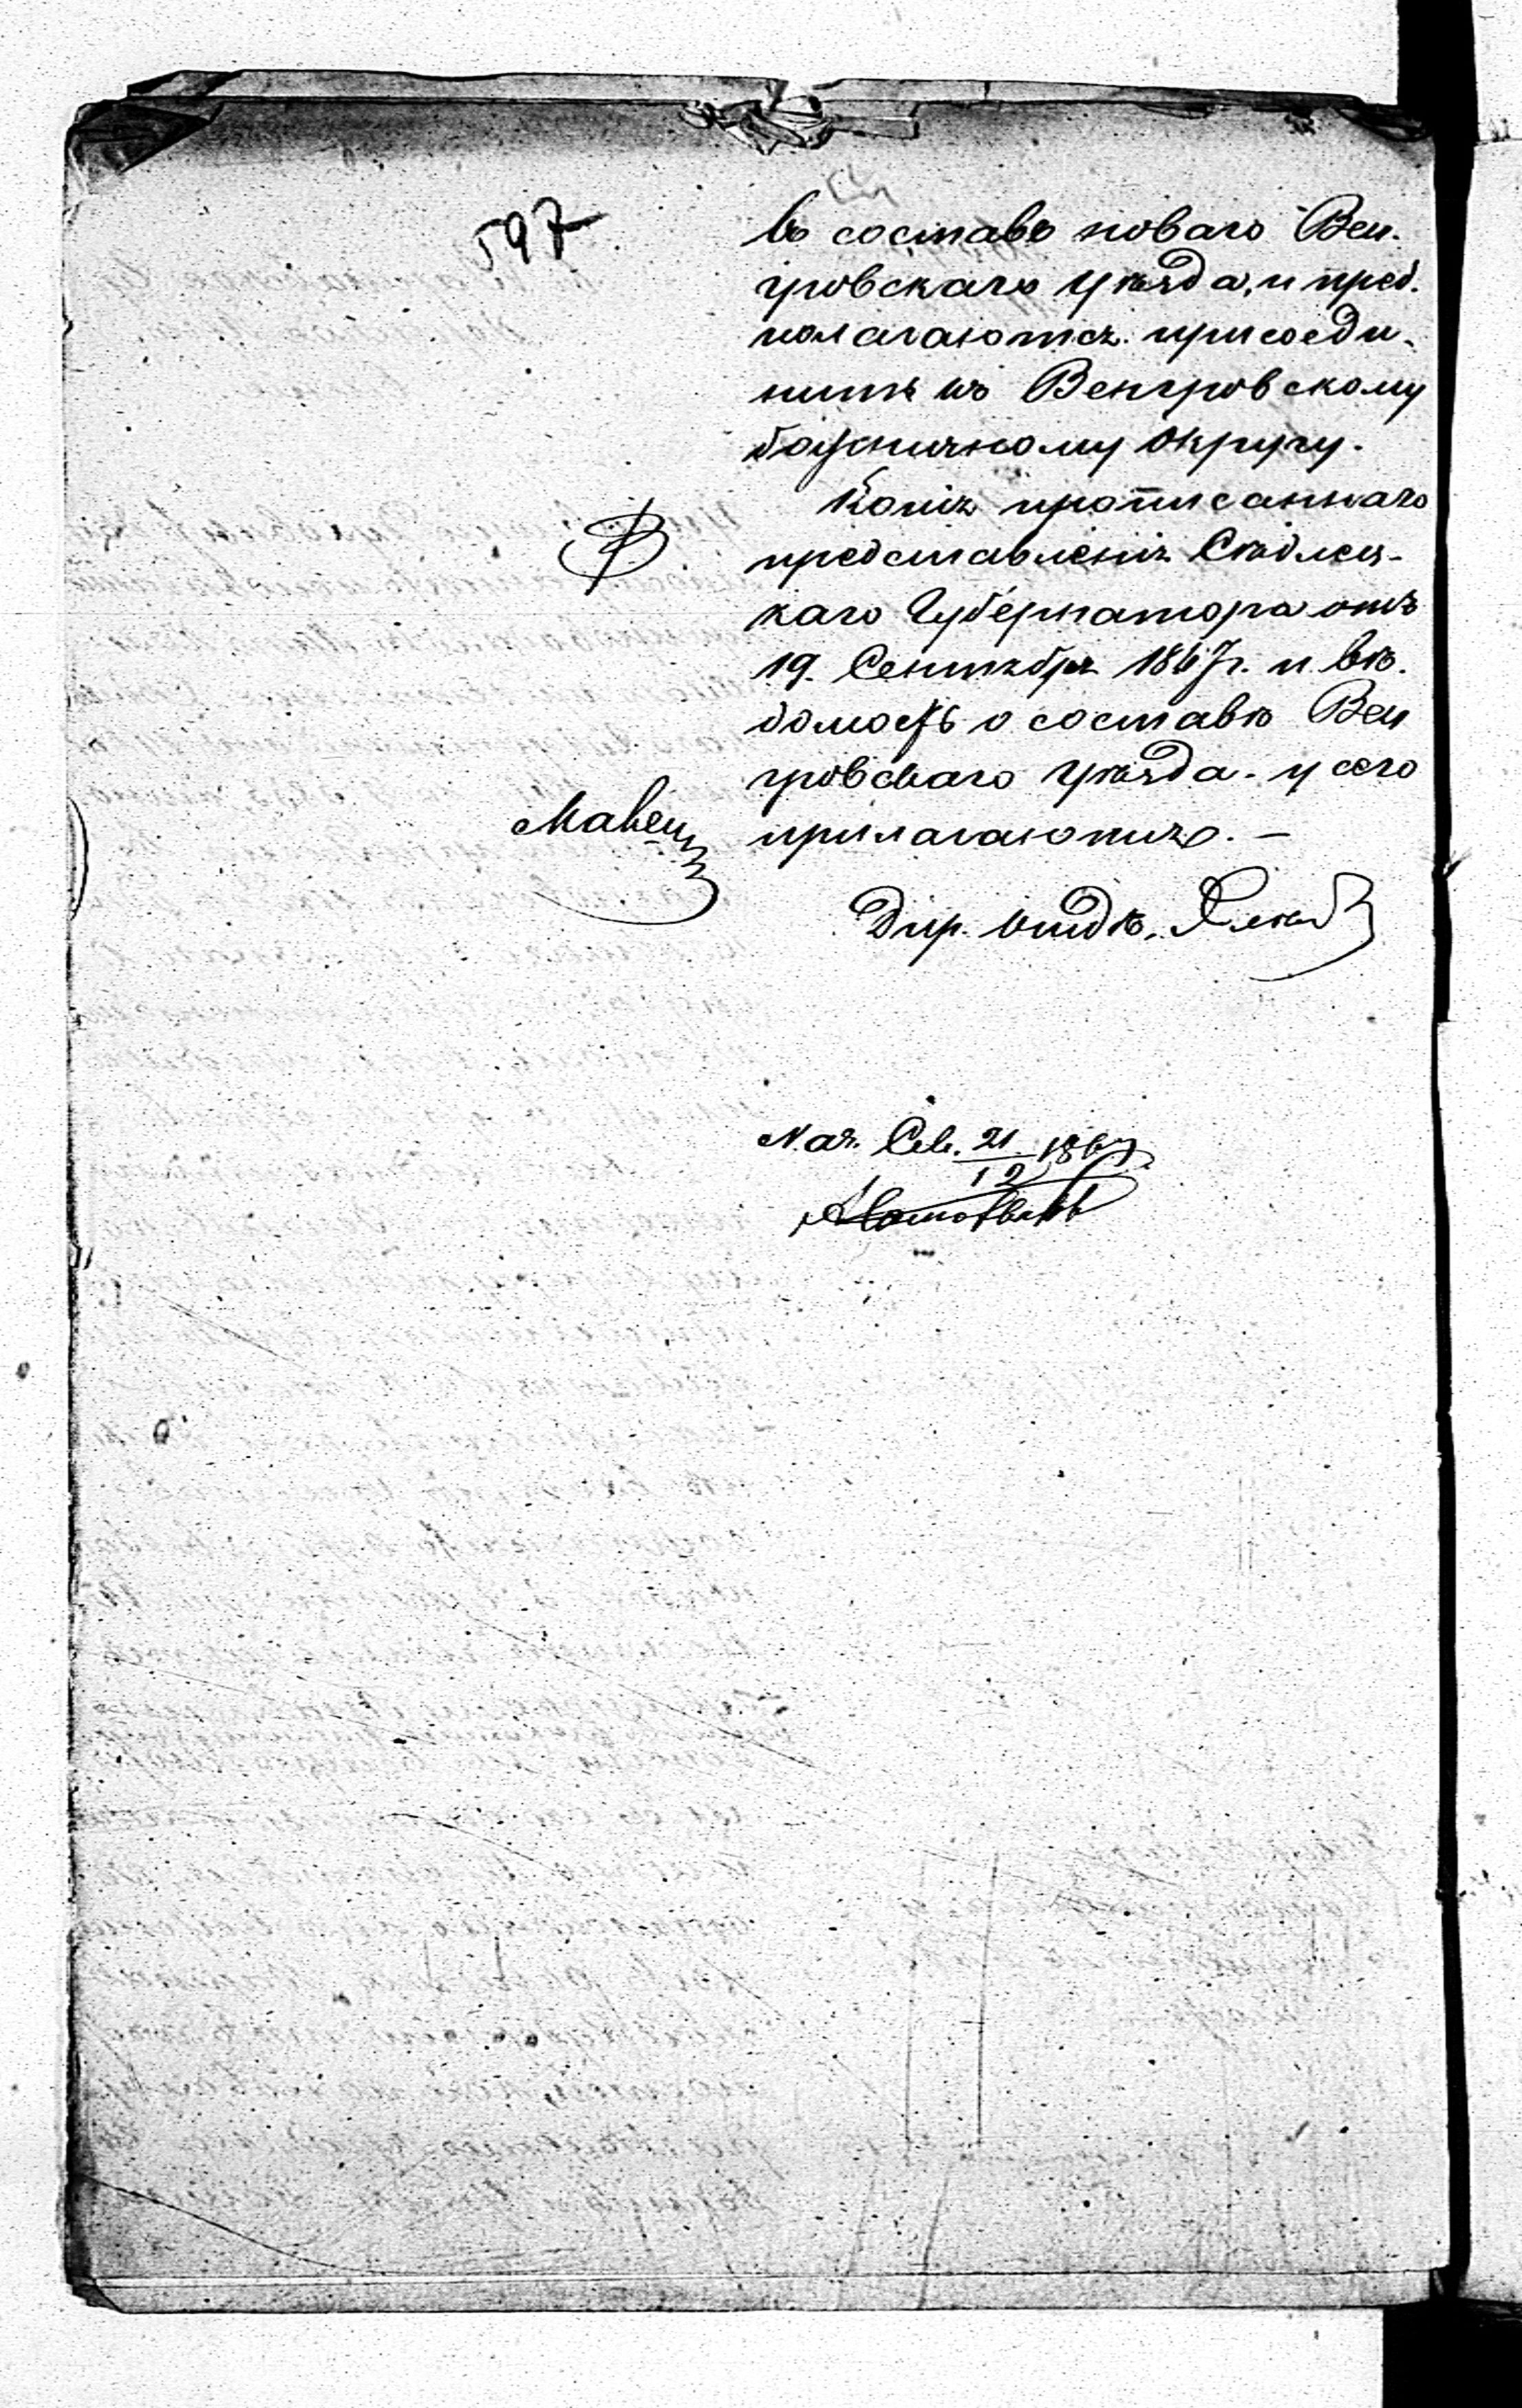 597
въ составъ новаго Вен-
гровскаго Уѣзда, и пред-
полагаются присоеди-
нить къ Венгровскому
божничному Округу.
Копія прописаннаго
представленія Сѣдлец-
каго Губернатора отъ
19. Сентября 1867 г. и вѣ-
домость о составѣ Вен
гровскаго Уѣзда. у сего
прилагаются. —
Дир. Отдѣ.
Нач. 21/12 1867